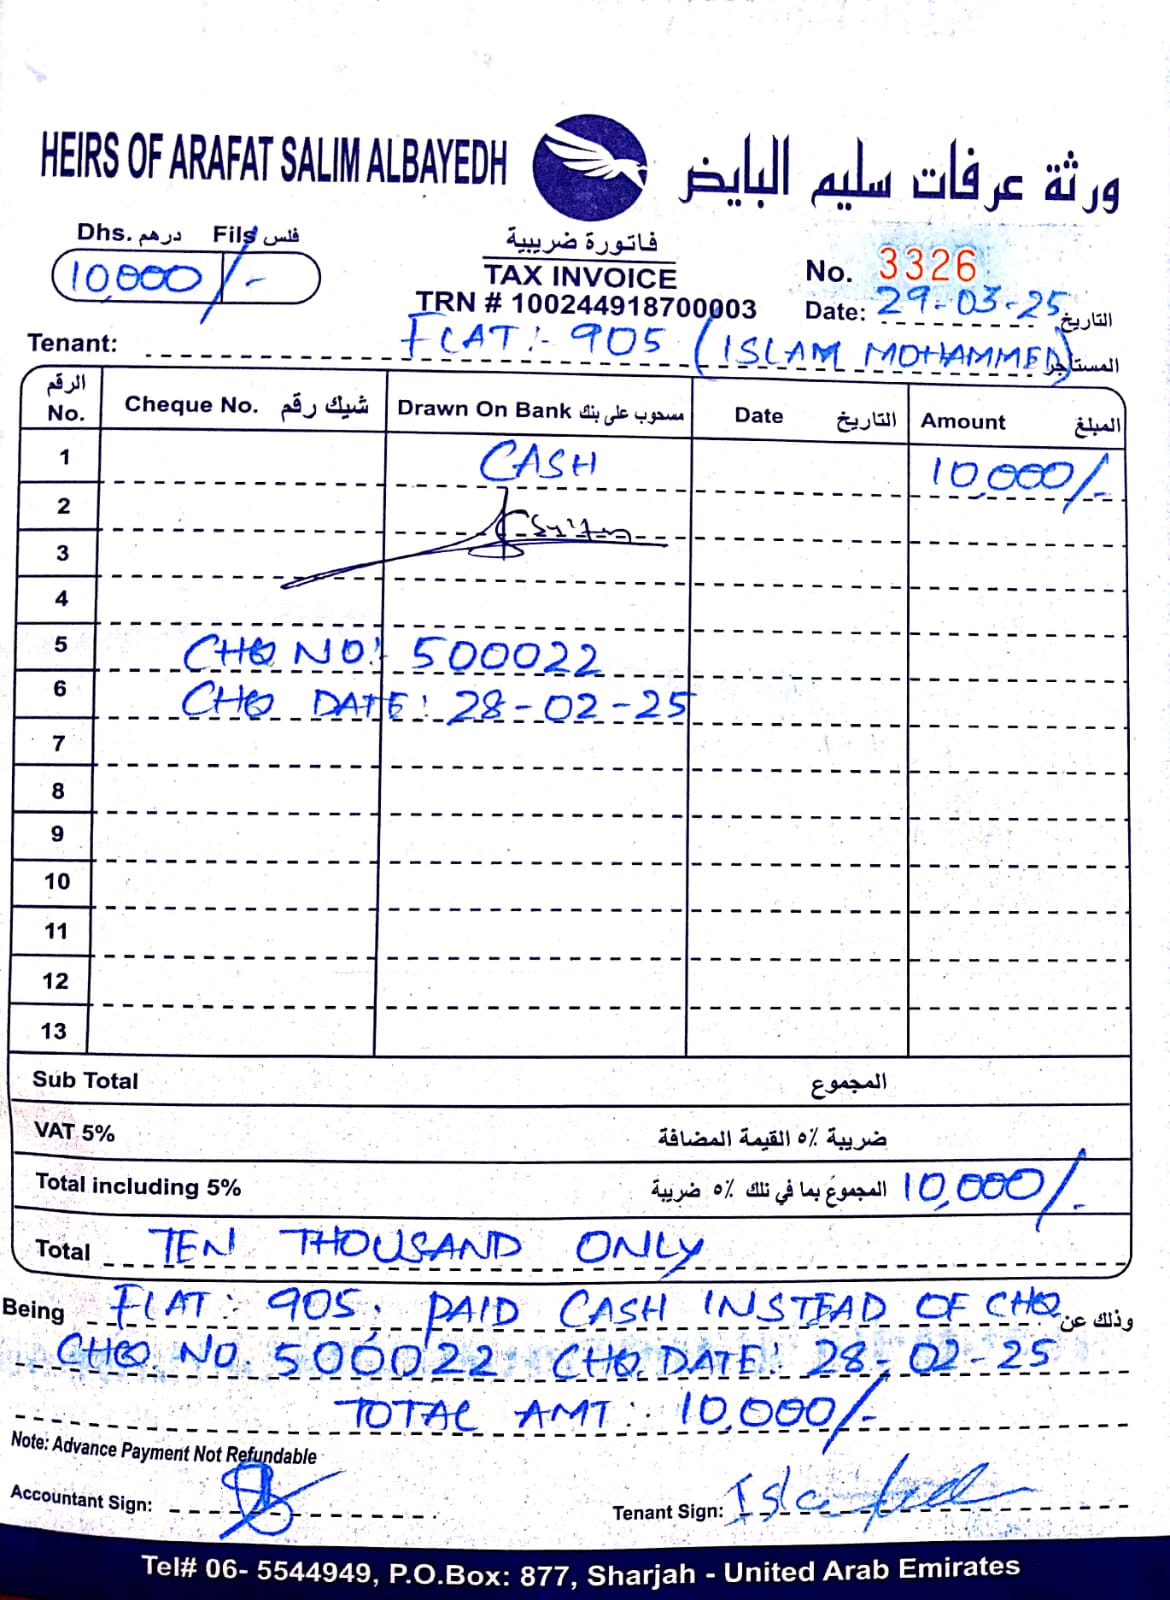 HEIRS OF ARAFAT SALIM ALBAYEDH
ورثة عرفات سليم البايض
Dhs. درهم Fils فلس
10,000/-
فاتورة ضريبية
TAX INVOICE
TRN # 100244918700003
No. 3326
Date: 29-03-25 التاريخ
Tenant: FLAT:- 905 (ISLAM MOHAMMED) المستاجر
الرقم No. Cheque No. شيك رقم Drawn On Bank مسحوب على بنك Date التاريخ Amount المبلغ
1 CASH 10,000/-
2
3
4
5 CHQ NO: 500022
6 CHQ DATE: 28-02-25
7
8
9
10
11
12
13
Sub Total المجموع
VAT 5% ضريبة ٥٪ القيمة المضافة
Total including 5% المجموع بما في ذلك ٥٪ ضريبة 10,000/-
Total TEN THOUSAND ONLY
Being FLAT: 905, PAID CASH INSTEAD OF CHQ وذلك عن
CHQ. NO. 500022 CHQ. DATE: 28-02-25
TOTAL AMT: 10,000/-
Note: Advance Payment Not Refundable
Accountant Sign:
Tenant Sign:
Tel# 06- 5544949, P.O.Box: 877, Sharjah - United Arab Emirates